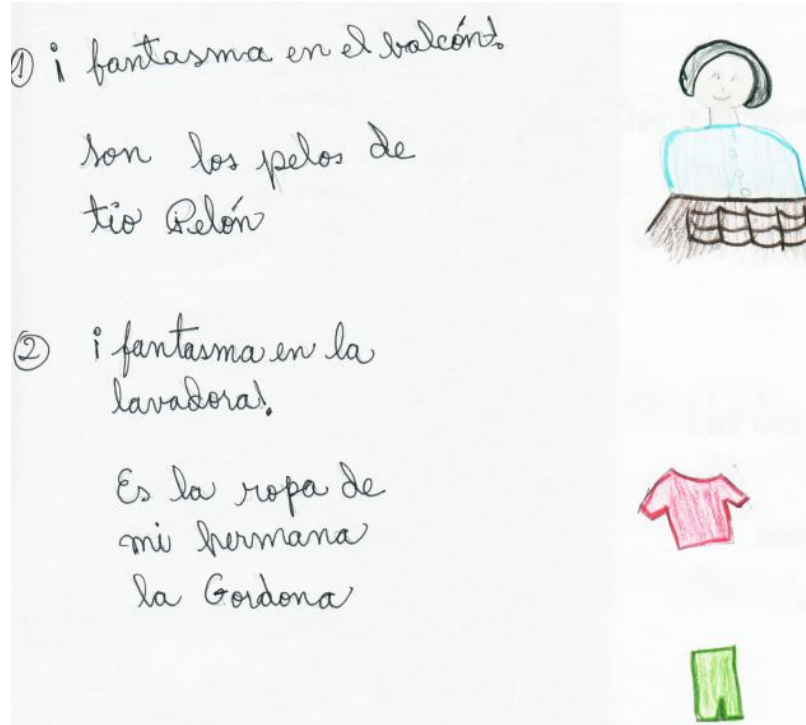 ① ¡ fantasma en el balcón!
son los pelos de
tio Pelón
② ¡ fantasma en la
lavadora!
Es la ropa de
mi hermana
la Gordona